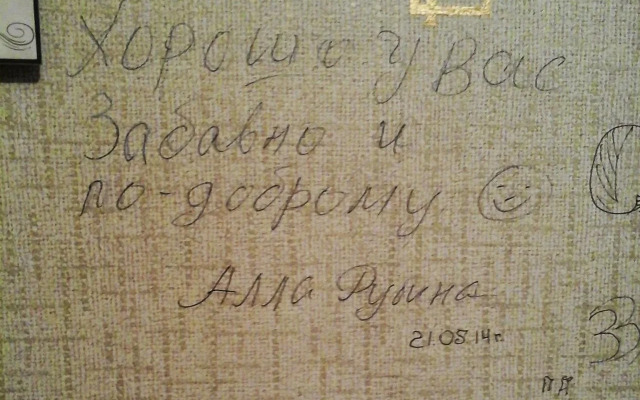 Хорошо у вас
Забавно и
по-доброму
Алла
21.05.14г.